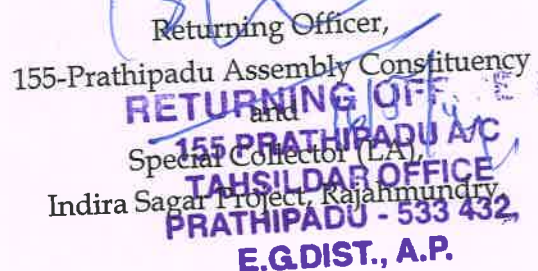 Returning Officer,
155-Prathipadu Assembly Constituency
and
Special Collector (LA),
Indira Sagar Project, Rajahmundry,
RETURNING OFF E
155 PRATHIPADU A/C
TAHSILDAR OFFICE
PRATHIPADU - 533 432,
E.G.DIST., A.P.